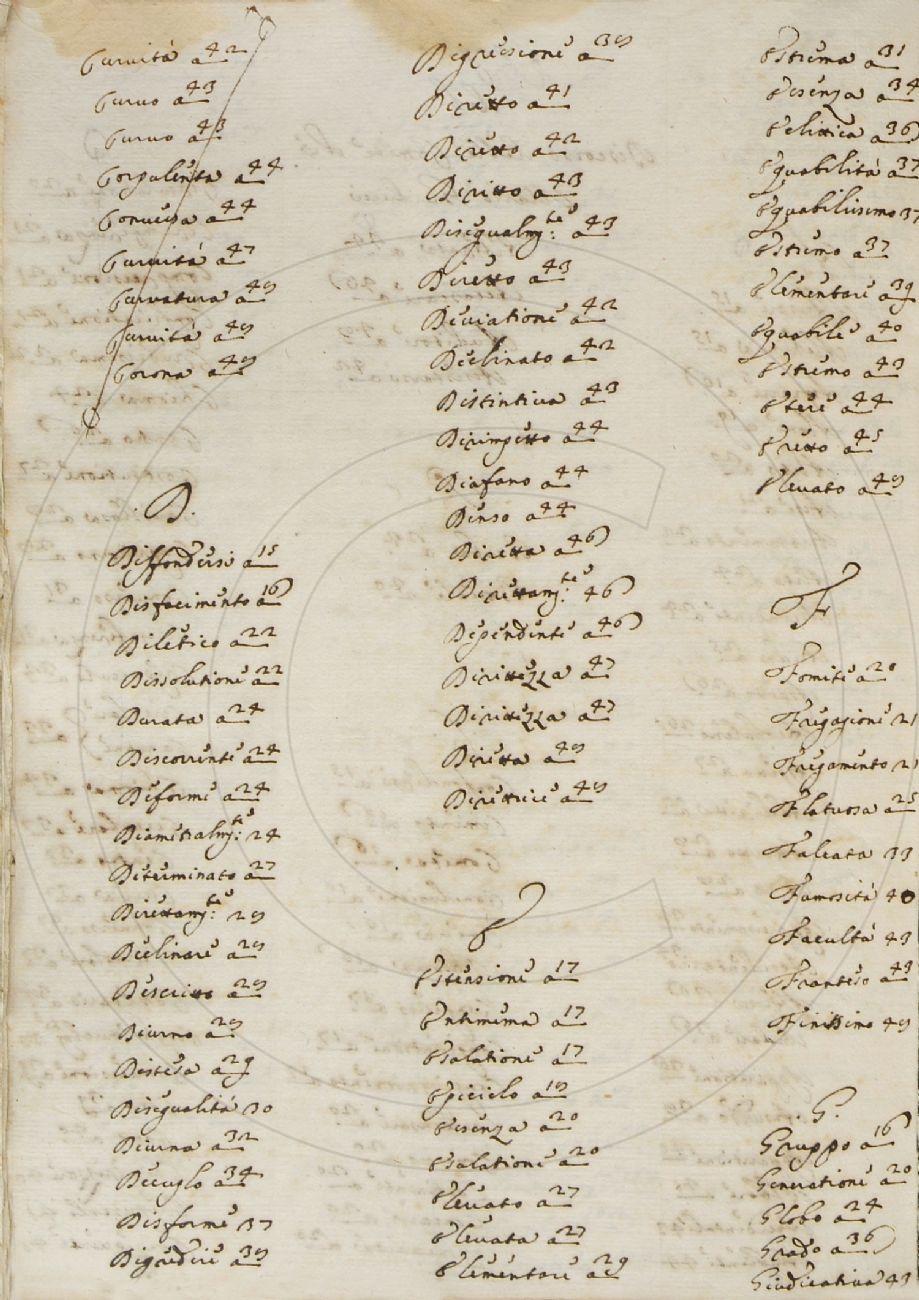 Curuità a 42
Curuo a 43
Curuo a 43
Corpulenta a 44
Conuersa a 44
Curuità a 47
Curvatura a 49
Curuità a 49
Corona a 49
.D.
Diffondersi a 15
Disfacimento a 16
Diletico a 22
Dissolutione a 22
Durata a 24
Discorrente a 24
Deforme a 24
Diametralmte: 24
Determinato a 27
Direttamte: 29
Declinare a 29
Descritto a 29
Diurno a 29
Distesa a 29
Disegualità 30
Diurna a 32
Disforme 37
Digredire a 39
Digressione a 39
Diretto a 41
Diretto a 42
Diritto a 43
Disegualmte: a 43
Diretto a 43
Deuiatione a 42
Declinato a 42
Distintiua a 43
Dirimpetto a 44
Diafano a 44
Denso a 44
Diretta a 46
Direttamte: 46
Dependente a 46
Dirittezza a 47
Dirittezza a 47
Diretta a 49
Direttrice a 49
E
Estensione a 17
Entimema a 17
Esalatione a 17
Epiciclo a 19
Essenza a 20
Esalatione a 20
Eleuato a 27
Eleuata a 27
Elementare a 29
Estrema a 31
Essenza a 34
Eclittica a 36
Equabilità a 37
Equabilissimo 37
Estremo a 37
Elementare a 39
Equabile a 40
Estremo a 43
Etere a 44
Eretto a 45
Eleuato a 49
F
Fomite a 20
Fregagione 21
Fregamento 21
Flatuosa a 25
Falcata 33
Famosità 40
Facultà 43
Franteso a 43
Finissimo 49
.G.
Gruppo a 16
Generatione a 20
Globo a 24
Grado a 36
Giudicatiua 43